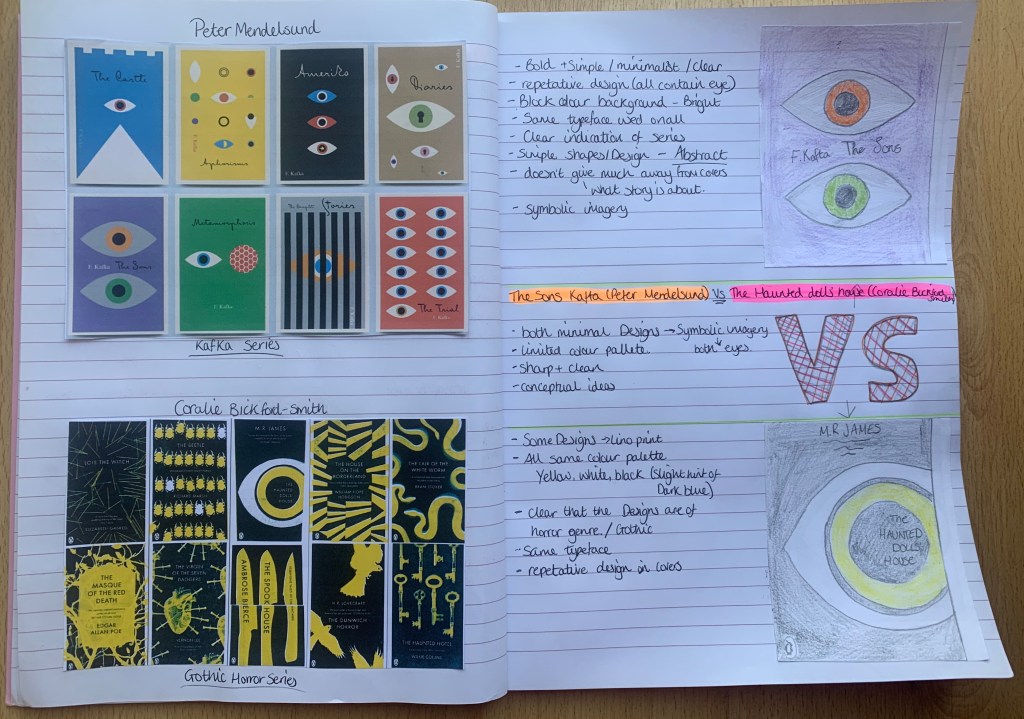 Peter Mendelsund
The Castle
Aphorisms
Amerika
F. Kafka
Diaries
F. Kafka
F. Kafka The Sons
Metamorphosis
F. Kafka
Stories
F. Kafka
The Trial
F. Kafka
Kafka Series
Coralie Bickford-Smith
LOIS THE WITCH
ELIZABETH GASKELL
THE BEETLE
RICHARD MARSH
M.R. JAMES
THE HAUNTED DOLLS' HOUSE
THE HOUSE ON THE BORDERLAND
WILLIAM HOPE HODGSON
THE LAIR OF THE WHITE WORM
BRAM STOKER
THE MASQUE OF THE RED DEATH
EDGAR ALLAN POE
THE VIRGIN OF THE SEVEN DAGGERS
VERNON LEE
THE SPOOK HOUSE
AMBROSE BIERCE
H. P. LOVECRAFT
THE DUNWICH HORROR
THE HAUNTED HOTEL
WILKIE COLLINS
Gothic Horror Series
- Bold + Simple / minimalist / clear
- repetative design (all contain eye)
- Block colour background - Bright
- Same typeface used on all
- Clear indication of series
- Simple shapes/Design - Abstract
- doesn't give much away from covers
what story is about.
- symbolic imagery
F. Kafta The Sons
The Sons Kafta (Peter Mendelsund) Vs The Haunted dolls house (Coralie Bickford Smith)
- both minimal Designs → Symbolic imagery
- limited colour pallete. both eyes.
- sharp + clean
- conceptual ideas
VS
- Some Designs → Lino print
- All same colour palette
Yellow, white, black (slight hint of
Dark blue)
- clear that the Designs are of
horror genre. / Gothic
- Same typeface
- repetative design in covers
M.R JAMES
The
HAUNTED
DOLLS
HOUSE